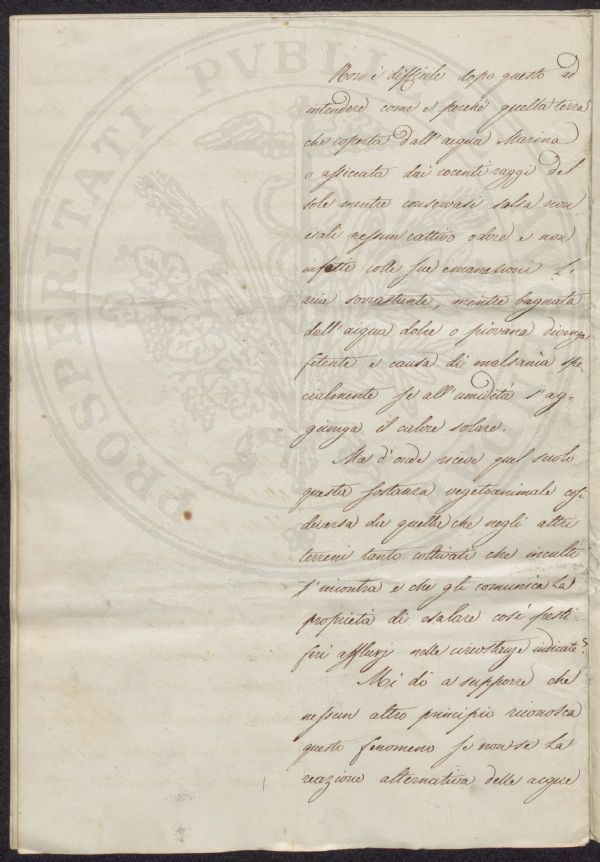 Non è difficile dopo questo ad
intendere come e perché quella terra
che coperta dall'acqua Marina
o assiccata dai cocenti raggi del
sole mentre conservasi salsa non
esali nessun cattivo odore e non
infetti colle sue emanazioni l'
aria sovrastante, mentre bagnata
dall'acqua dolce o piovana divenga
fetente e causa di malsanìa spe-
cialmente se all'umidità s'ag-
giunga il calore solare.
Ma d'onde riceve quel suolo
questa sostanza vegetoanimale così
diversa da quella che negli altri
terreni tanto coltivati che inculti
s'incontra e che gli comunica la
proprietà di esalare così pesti
feri effluvj nelle circostanze indicate?
Mi dò a supporre che
nessun altro principio riconosca
questo fenomeno se non se la
reazione alternativa delle acque
PROSPERITATI PVBLICAE